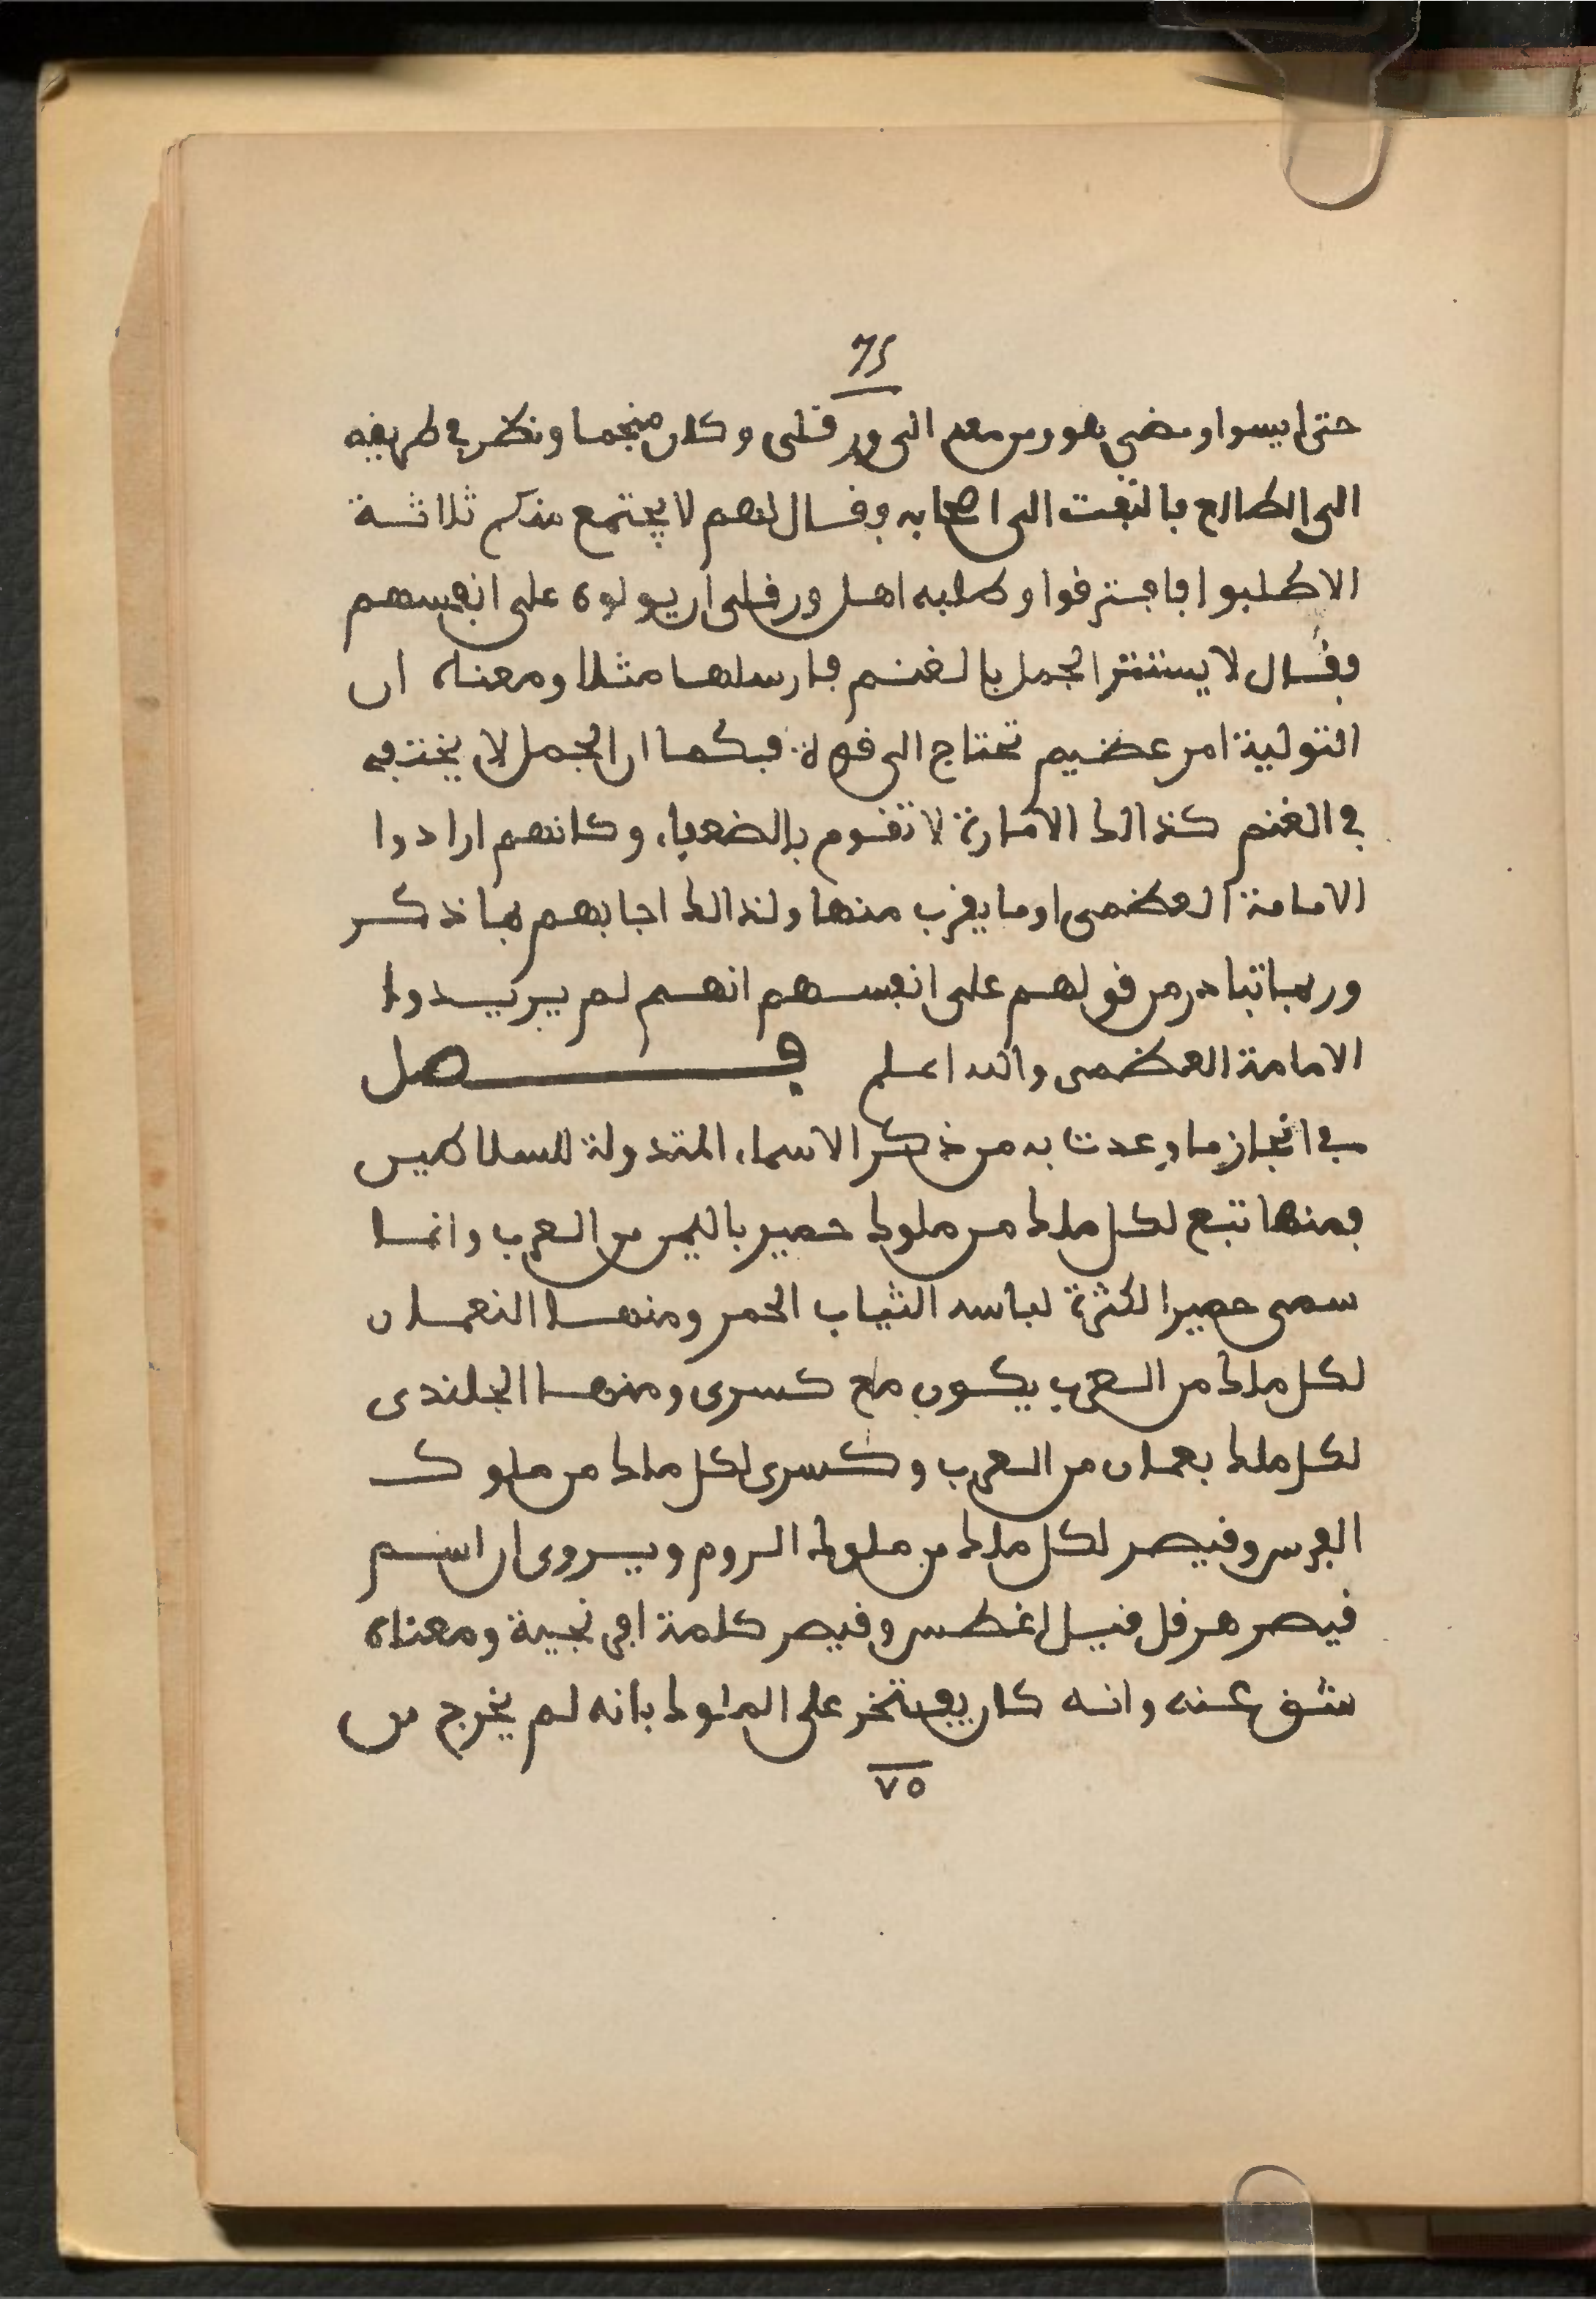 75
حتى ايسوا ومضى هو ومن معه الى ورقلى وكان منجما ونظر في طريقه
الى الطالع فالتفت الى اصحابه وقال لهم لا يجتمع منكم ثلاثة
الا طلبوا فافترقوا وطلبه اهل ورقلى ان يولوه على انفسهم
فقال لا يستتر الجمل بالغنم فارسلها مثلا ومعناه ان
التولية امر عظيم تحتاج الى قوة فكما ان الجمل لا يختفي
في الغنم كذالك الامارة لا تقوم بالضعفاء وكانهم ارادوا
الامامة العظمى او ما يقرب منها ولذالك اجابهم بما ذكر
وربما تبادر من قولهم على انفسهم انهم لم يريدوا
الامامة العظمى والله اعلم فصل
في انجاز ما وعدت به من ذكر الاسماء المتدولة للسلاطين
فمنها تبع لكل ملك من ملوك حمير باليمن من العرب وانما
سمى حميرا لكثرة لباسه الثياب الحمر ومنها النعمان
لكل ملك من العرب يكون مع كسرى ومنها الجلندى
لكل ملك بعمان من العرب وكسرى لكل ملك من ملوك
الفرس وقيصر لكل ملك من ملوك الروم ويروى ان اسم
قيصر هرقل قيل اغطس وقيصر كلمة افرنجية ومعناه
شق عنه وانه كان يفتخر على الملوك بانه لم يخرج من
٧٥